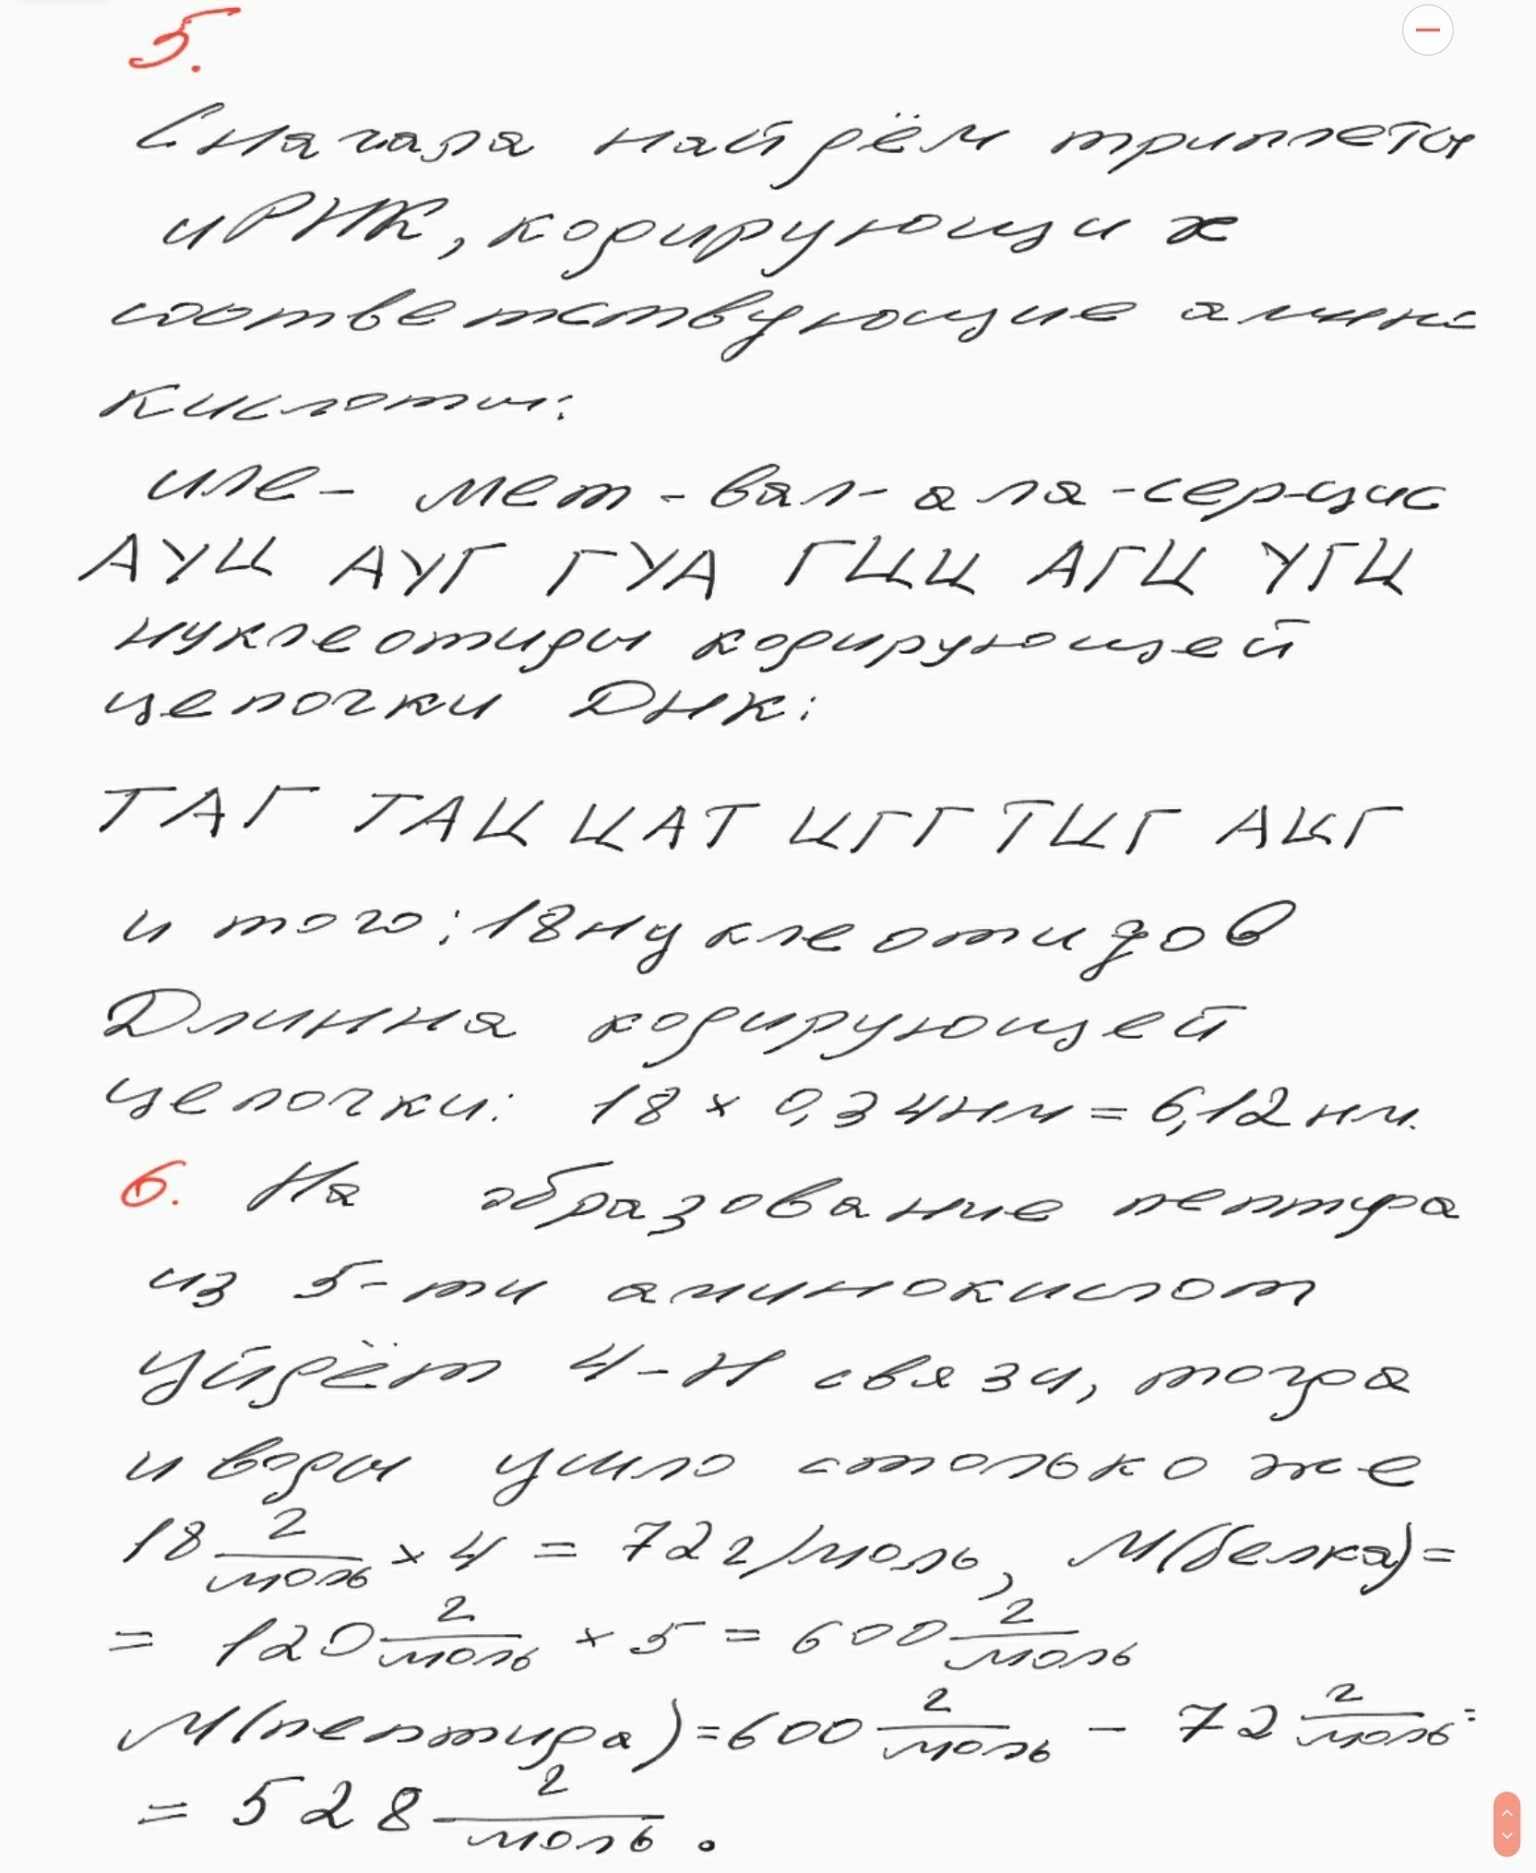 5.
Сначала найдём триплеты
иРНК, кодирующих
соответствующие амино
кислоты:
иле- мет - вал- ала -сер-цис
АУЦ АУГ ГУА ГЦЦ АГЦ УГЦ
нуклеотиды кодирующей
цепочки ДНК:
ТАГ ТАЦ ЦАТ ЦГГ ТЦГ АЦГ
и того: 18 нуклеотидов
Длинна кодирующей
цепочки: 18 × 0,34нм = 6,12 нм.
6. На образование пептида
из 5-ти аминокислот
уйдёт 4-Н связи, тогда
и воды ушло столько же
18 г/моль × 4 = 72 г/моль, М(белка) =
= 120 г/моль × 5 = 600 г/моль
М(пептида) = 600 г/моль - 72 г/моль =
= 528 г/моль.